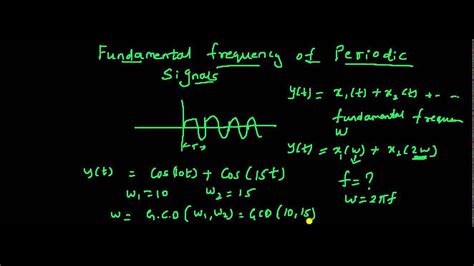 Fundamental frequency of Periodic
Signals
y(t) = x₁(t) + x₂(t) + - -
fundamental frequen
w
y(t) = x₁(w) + x₂(2w)
y(t) = Cos(10t) + Cos(15t)
w₁=10 w₂=15
w = G.C.D(w₁,w₂) = GCD(10,15)
f = ?
w=2πf